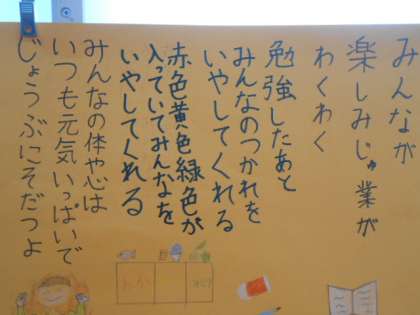 みんなが
楽しみじゅ業が
わくわく
勉強したあと
みんなのつかれを
いやしてくれる
赤色黄色緑色が
入っていてみんなを
いやしてくれる
みんなの体や心は
いつも元気いっぱいで
じょうぶにそだつよ